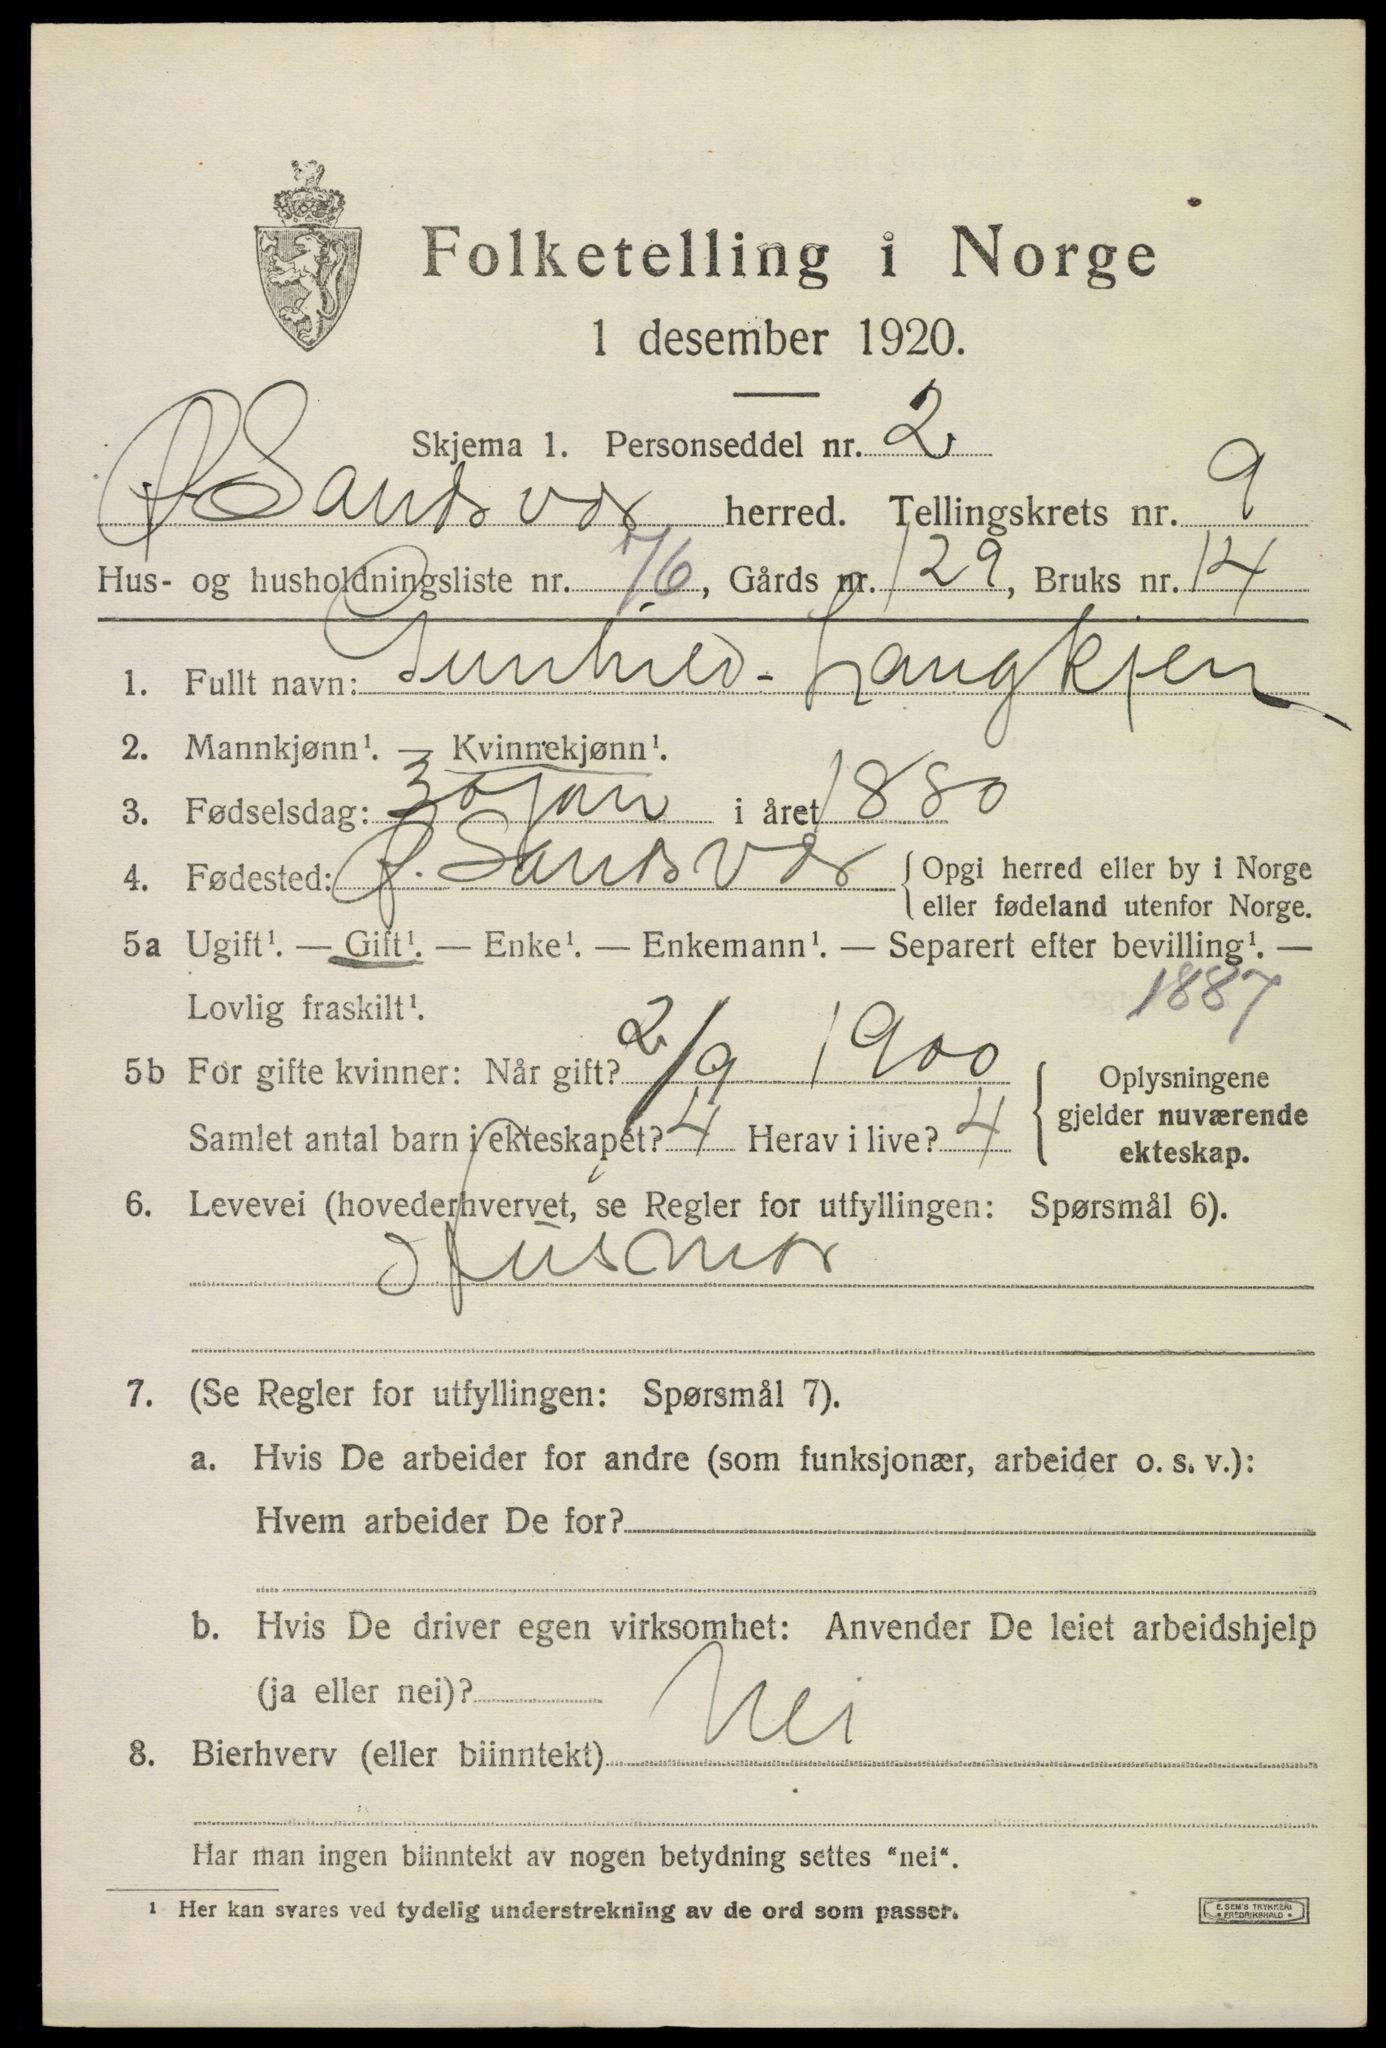 Folketelling i Norge
1 desember 1920.
Skjema 1. Personseddel nr. 2
Sandsvær herred. Tellingskrets nr. 9
Hus- og husholdningsliste nr. 76, Gårds nr. 129, Bruks nr. 14
1. Fullt navn: Gunhild Langkjen
2. Mannkjønn¹. — Kvinnekjønn¹.
3. Fødselsdag: 30 jan i året 1880
4. Fødested: Sandsvær { Opgi herred eller by i Norge
eller fødeland utenfor Norge.
5a Ugift¹. — Gift¹. — Enke¹. — Enkemann¹. — Separert efter bevilling¹. —
Lovlig fraskilt¹. 1887
5b For gifte kvinner: Når gift? 2/9 1900
Samlet antal barn i ekteskapet? 4 Herav i live? 4
Oplysningene
gjelder nuværende
ekteskap.
6. Levevei (hovederhvervet, se Regler for utfyllingen: Spørsmål 6).
Husmor
7. (Se Regler for utfyllingen: Spørsmål 7).
a. Hvis De arbeider for andre (som funksjonær, arbeider o. s. v.):
Hvem arbeider De for?
b. Hvis De driver egen virksomhet: Anvender De leiet arbeidshjelp
(ja eller nei)?
8. Bierhverv (eller biinntekt) Nei
Har man ingen biinntekt av nogen betydning settes "nei".
¹ Her kan svares ved tydelig understrekning av de ord som passer.
E. SEM'S TRYKKERI
FREDRIKSHALD